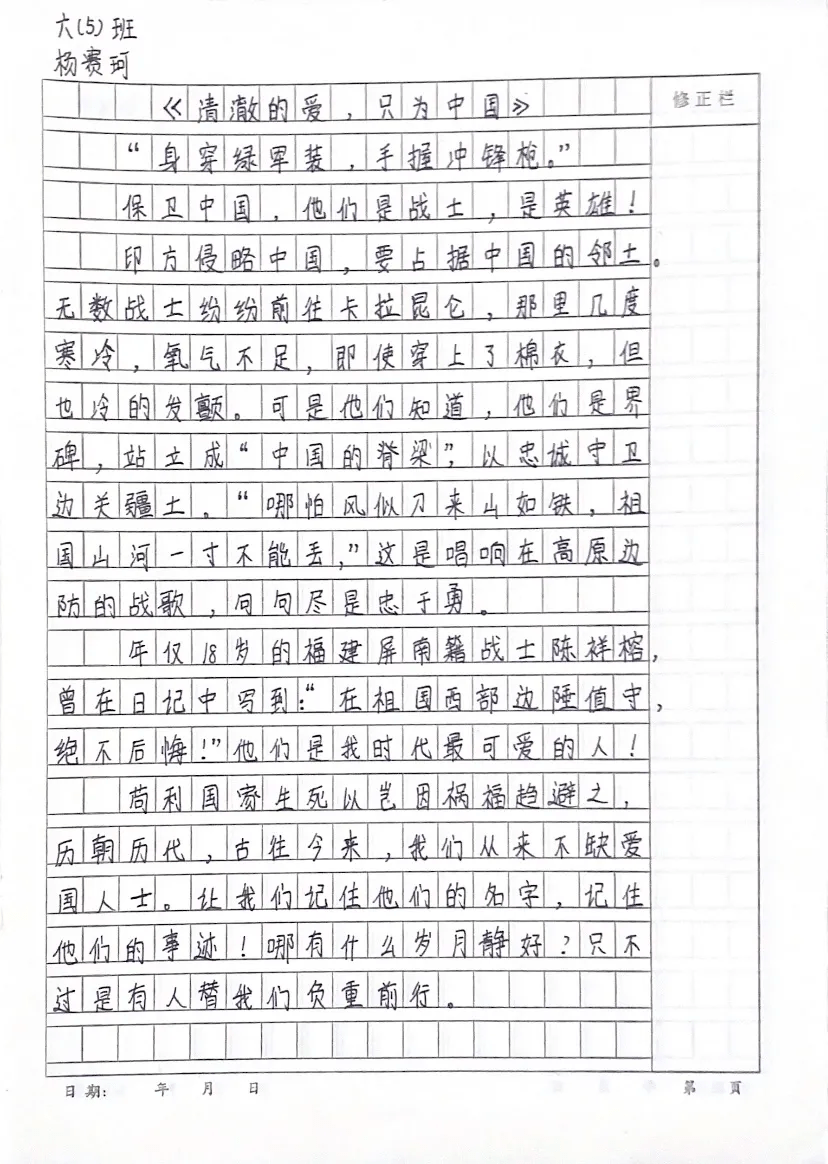 六(5)班
杨赛珂
《清澈的爱，只为中国》
修正栏
“身穿绿军装，手握冲锋枪。”
保卫中国，他们是战士，是英雄！
印方侵略中国，要占据中国的邻土。
无数战士纷纷前往卡拉昆仑，那里几度
寒冷，氧气不足，即使穿上了棉衣，但
也冷的发颤。可是他们知道，他们是界
碑，站立成“中国的脊梁”，以忠城守卫
边关疆土。“哪怕风似刀来山如铁，祖
国山河一寸不能丢，”这是唱响在高原边
防的战歌，句句尽是忠于勇。
年仅18岁的福建屏南籍战士陈祥榕，
曾在日记中写到：“在祖国西部边陲值守，
绝不后悔！”他们是我时代最可爱的人！
苟利国家生死以岂因祸福趋避之，
历朝历代，古往今来，我们从来不缺爱
国人士。让我们记住他们的名字，记住
他们的事迹！哪有什么岁月静好？只不
过是有人替我们负重前行。
日期： 年 月 日 第 页